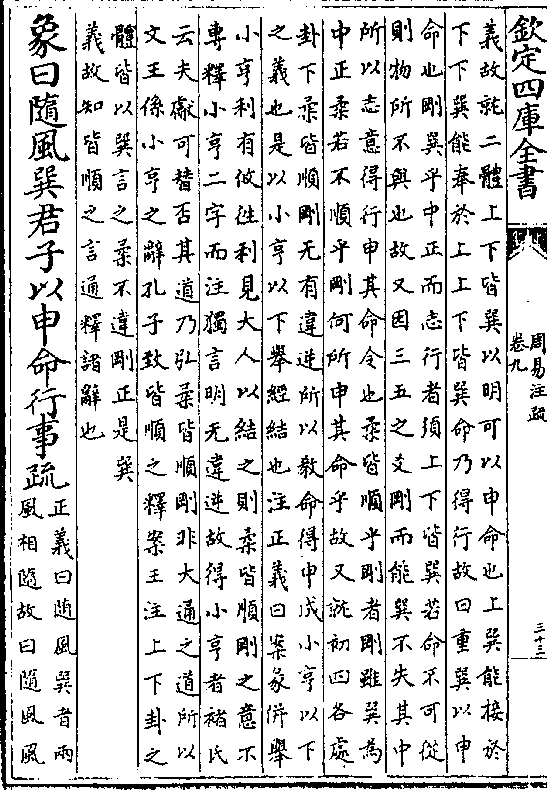 欽定四庫全書
周易注疏
卷九
三十三
義故就二體上下皆巽以明可以申命也上巽能接於
下下巽能奉於上上下皆巽命乃得行故曰重巽以申
命也剛巽乎中正而志行者須上下皆巽若命不可從
則物所不與也故又因三五之爻剛而能巽不失其中
所以志意得行申其命令也柔皆順乎剛者剛雖巽為
中正柔若不順乎剛何所申其命乎故又就初四各處
卦下柔皆順剛无有違逆所以教命得申成小亨以下
之義也是以小亨以下舉經結也注正義曰案彖併舉
小亨利有攸往利見大人以結之則柔皆順剛之意不
專釋小亨二字而注獨言明无違逆故得小亨者褚氏
云夫獻可替否其道乃弘柔皆順剛非大通之道所以
文王係小亨之辭孔子致皆順之釋案王注上下卦之
體皆以巽言之柔不違剛正是巽
義故知皆順之言通釋諸辭也
象曰隨風巽君子以申命行事疏
正義曰隨風巽者兩
風相隨故曰隨風風